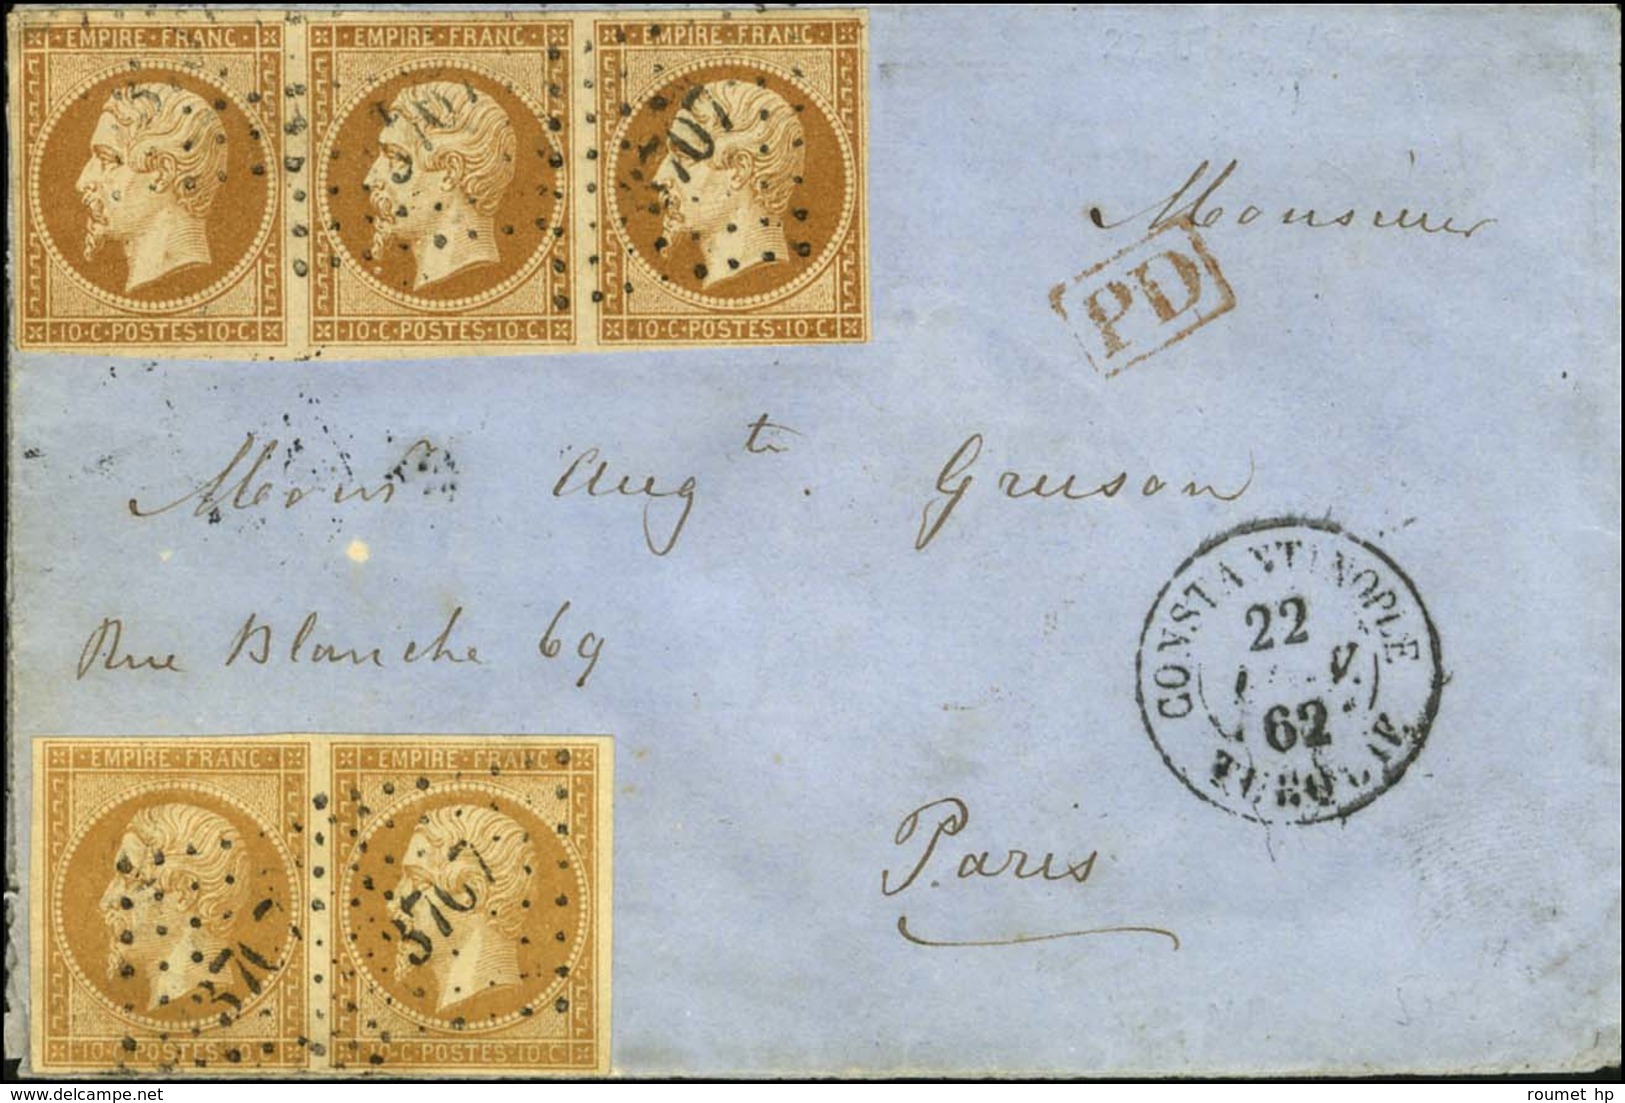 EMPIRE·FRANC· EMPIRE·FRANC· EMPIRE·FRANC·
3707
3707
·10·C·POSTES·10·C· ·10·C·POSTES·10·C· ·10·C·POSTES·10·C·
Monsieur
PD
Augte. Gruson
Rue Blanche 69
CONSTANTINOPLE
22
62
TURQUIE
EMPIRE·FRANC· EMPIRE·FRANC·
3707
3707
·10·C·POSTES·10·C· ·10·C·POSTES·10·C·
Paris
roumet hp